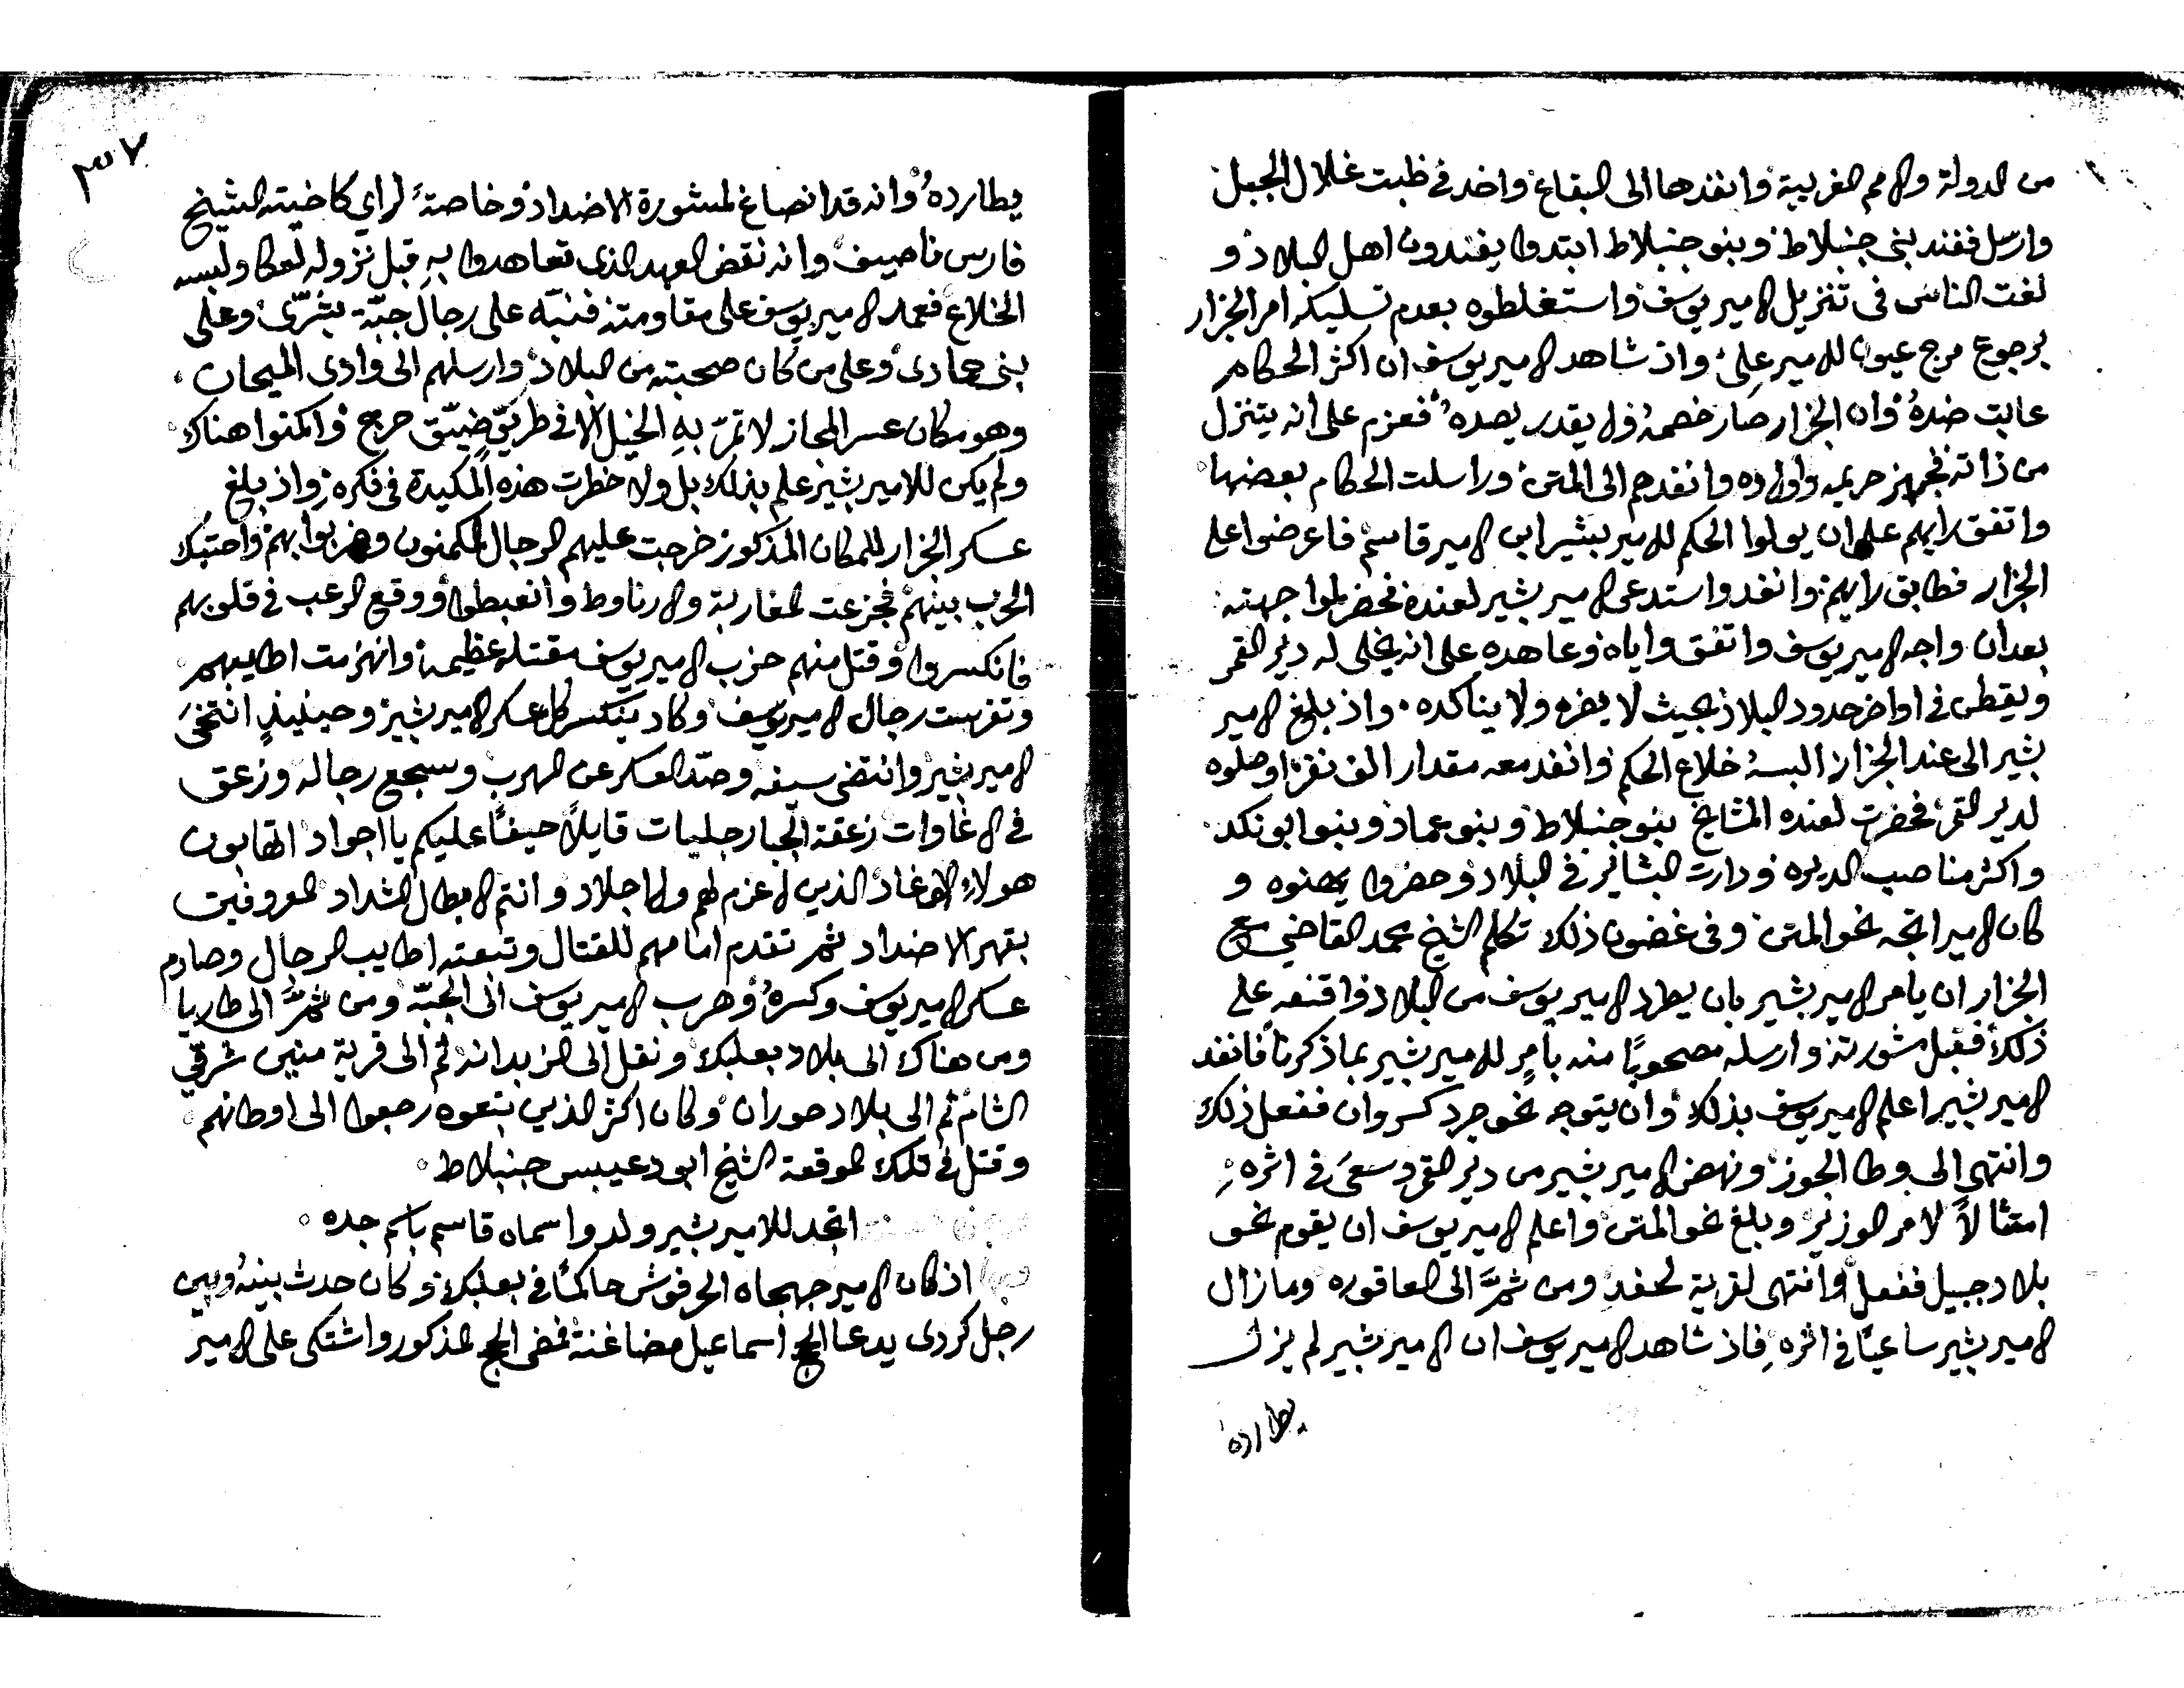 من الدولة والامم الغريبة وانفذها الى البقاع واخذ في ظبت غلال الجبل
وارسل ففند بنى جنبلاط وبنو جنبلاط ابتدوا يفندون اهل البلاد و
لفت الناس في تنزيل الامير يوسف واستغلطوه بعدم تسليكه امر الجزار
برجوع مرج عيون للامير علي واذ شاهد الامير يوسف ان اكثر الحكام
عابت ضده وان الجزار صار خصمه ولم يقدر يصده فعزم على انه يتنزل
من ذاته فجهز حريمه واولاده وانفدهم الى المتن وراسلت الحكام بعضها
واتفق رايهم على ان يولوا الحكم للامير بشير ابن الامير قاسم فاعرضوا على
الجزار فطابق رايهم وانفد واستدعى الامير بشير لعنده فحضر لمواجهته
بعد ان واجه الامير يوسف واتفق واياه وعاهده على انه يخلى له دير القمر
ويقطن في اواخر حدود البلاد بحيث لا يضره ولا يناكده واذ بلغ الامير
بشير الى عند الجزار البسه خلاع الحكم وانفد معه مقدار الف نفر اوصلوه
لدير القمر فحضرت لعنده المشايخ بنو جنبلاط وبنو عماد وبنو ابو نكد
واكثر مناصب الديره ودارت البشاير في البلاد وحضروا يهنوه و
كان الامير اتجه نحو المتن وفى غضون ذلك تكلم الشيخ محمد القاضي مع
الجزار ان يامر الامير بشير بان يطرد الامير يوسف من البلاد واقنعه على
ذلك فقبل مشورته وارسله مصحوبًا منه بامرٍ للامير بشير بما ذكرنا فانفد
الامير بشير اعلم الامير يوسف بذلك وان يتوجه نحو جرد كسروان ففعل ذلك
وانتهى الى وطا الجوز ونهض الامير بشير من دير القمر وسعى في اثره
امتثالاً لامر الوزير وبلغ نحو المتن واعلم الامير يوسف ان يقوم نحو
بلاد جبيل ففعل وانتهى لقرية لحفد ومن ثمَّ الى العاقوره وما زال
الامير بشير ساعيًا في اثره فاذ شاهد الامير يوسف ان الامير بشير لم يزل
يطارده
٣٧
يطارده وانه قد انصاغ لمشورة الاضداد وخاصةً لراي كاخيته الشيخ
فارس ناصيف وانه نقض العهد الذى تعاهدوا به قبل نزوله لعكا ولبسه
الخلاع فعمد الامير يوسف على مقاومته فنبّه على رجال جبّة بشرّى وعلى
بنى حمادى وعلى من كان صحبته من البلاد وارسلهم الى وادى الميحان
وهو مكان عسر المجاز لا تمرّ بهِ الخيل الا في طريق ضيّق حرج واكمنوا هناك
ولم يكن للامير بشير علم بذلك بل ولا خطرت هذه المكيدة في فكره واذ بلغ
عسكر الجزار للمكان المذكور خرجت عليهم الرجال المكمنون وضربوا بهم واحتبك
الحرب بينهم فجزعت المغاربة والارناوط وانغبطوا ووقع الرعب في قلوبهم
فانكسروا وقتل منهم حزب الامير يوسف مقتله عظيمه وانهزمت اطايبهم
وتفرست رجال الامير يوسف وكاد ينكسر كل عسكر الامير بشير وحينيذٍ انتخى
الامير بشير وانتضى سيفه وصدّ العسكر عن الهرب وسجع رجاله وزعق
في الاغاوات زعقة الجبار جليات قايلاً حيفًا عليكم يا اجواد اتهابون
هولاء الاوغاد الذين لا عزم لهم ولا اجلاد وانتم الابطال الشداد المعروفين
بقهر الاضداد ثم تقدم امامهم للقتال وتبعته اطايب الرجال وصادم
عسكر الامير يوسف وكسره وهرب الامير يوسف الى الجبّة ومن ثمَّ الى طاريا
ومن هناك الى بلاد بعلبك ونقل الى الزبدانه ثم الى قرية منين شرقي
الشام ثم الى بلاد حوران وكان اكثر الذين بتعوه رجعوا الى اوطانهم
وقتل في تلك الموقعة الشيخ ابو دعيبس جنبلاط
اتجد للامير بشير ولد واسماه قاسم باسم جده
اذ كان الامير جهجاه الحرفوش حاكمًا في بعلبك وكان حدث بينه وبين
رجل كردى يدعا الحج اسماعيل مضاغنة فمضى الحج المذكور واشتكى على الامير